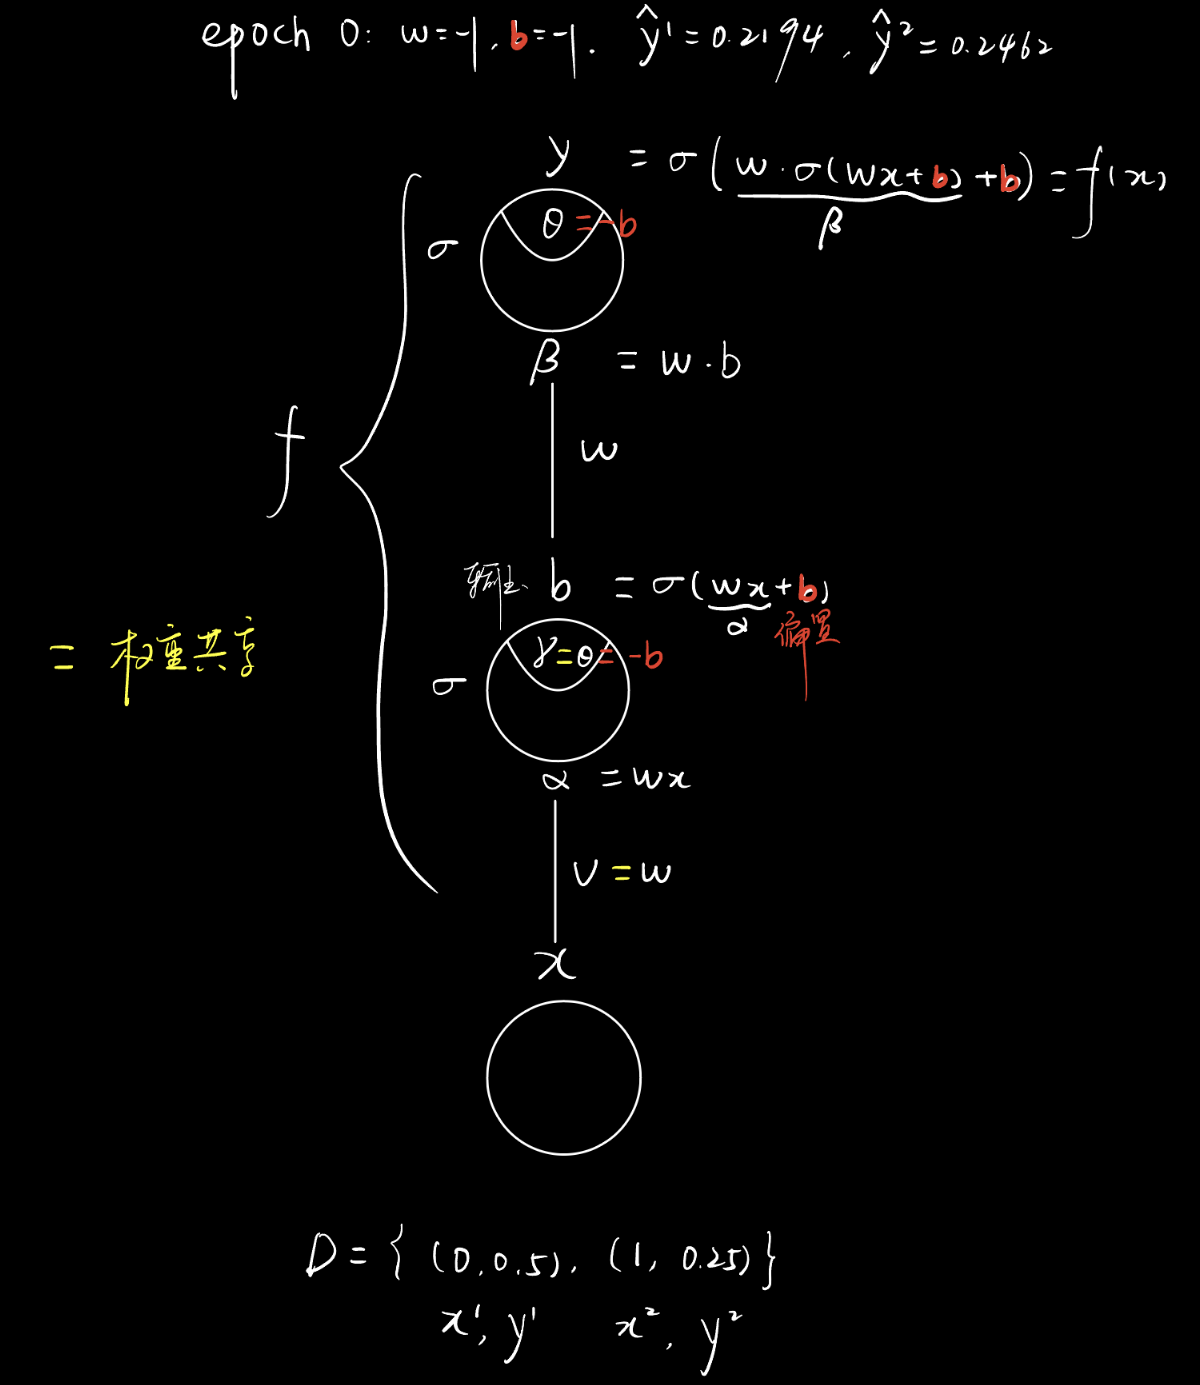 epoch 0: w=-1, b=-1. ŷ¹=0.2194, ŷ²=0.2462
y = σ(w·σ(wx+b)+b) = f(x)
β
θ=-b
σ
β = w·b
w
f
输出 b = σ(wx+b)
α 偏置
= 权重共享
γ=θ=-b
σ
α = wx
v=w
x
D={(0,0.5), (1, 0.25)}
x¹, y¹ x², y²